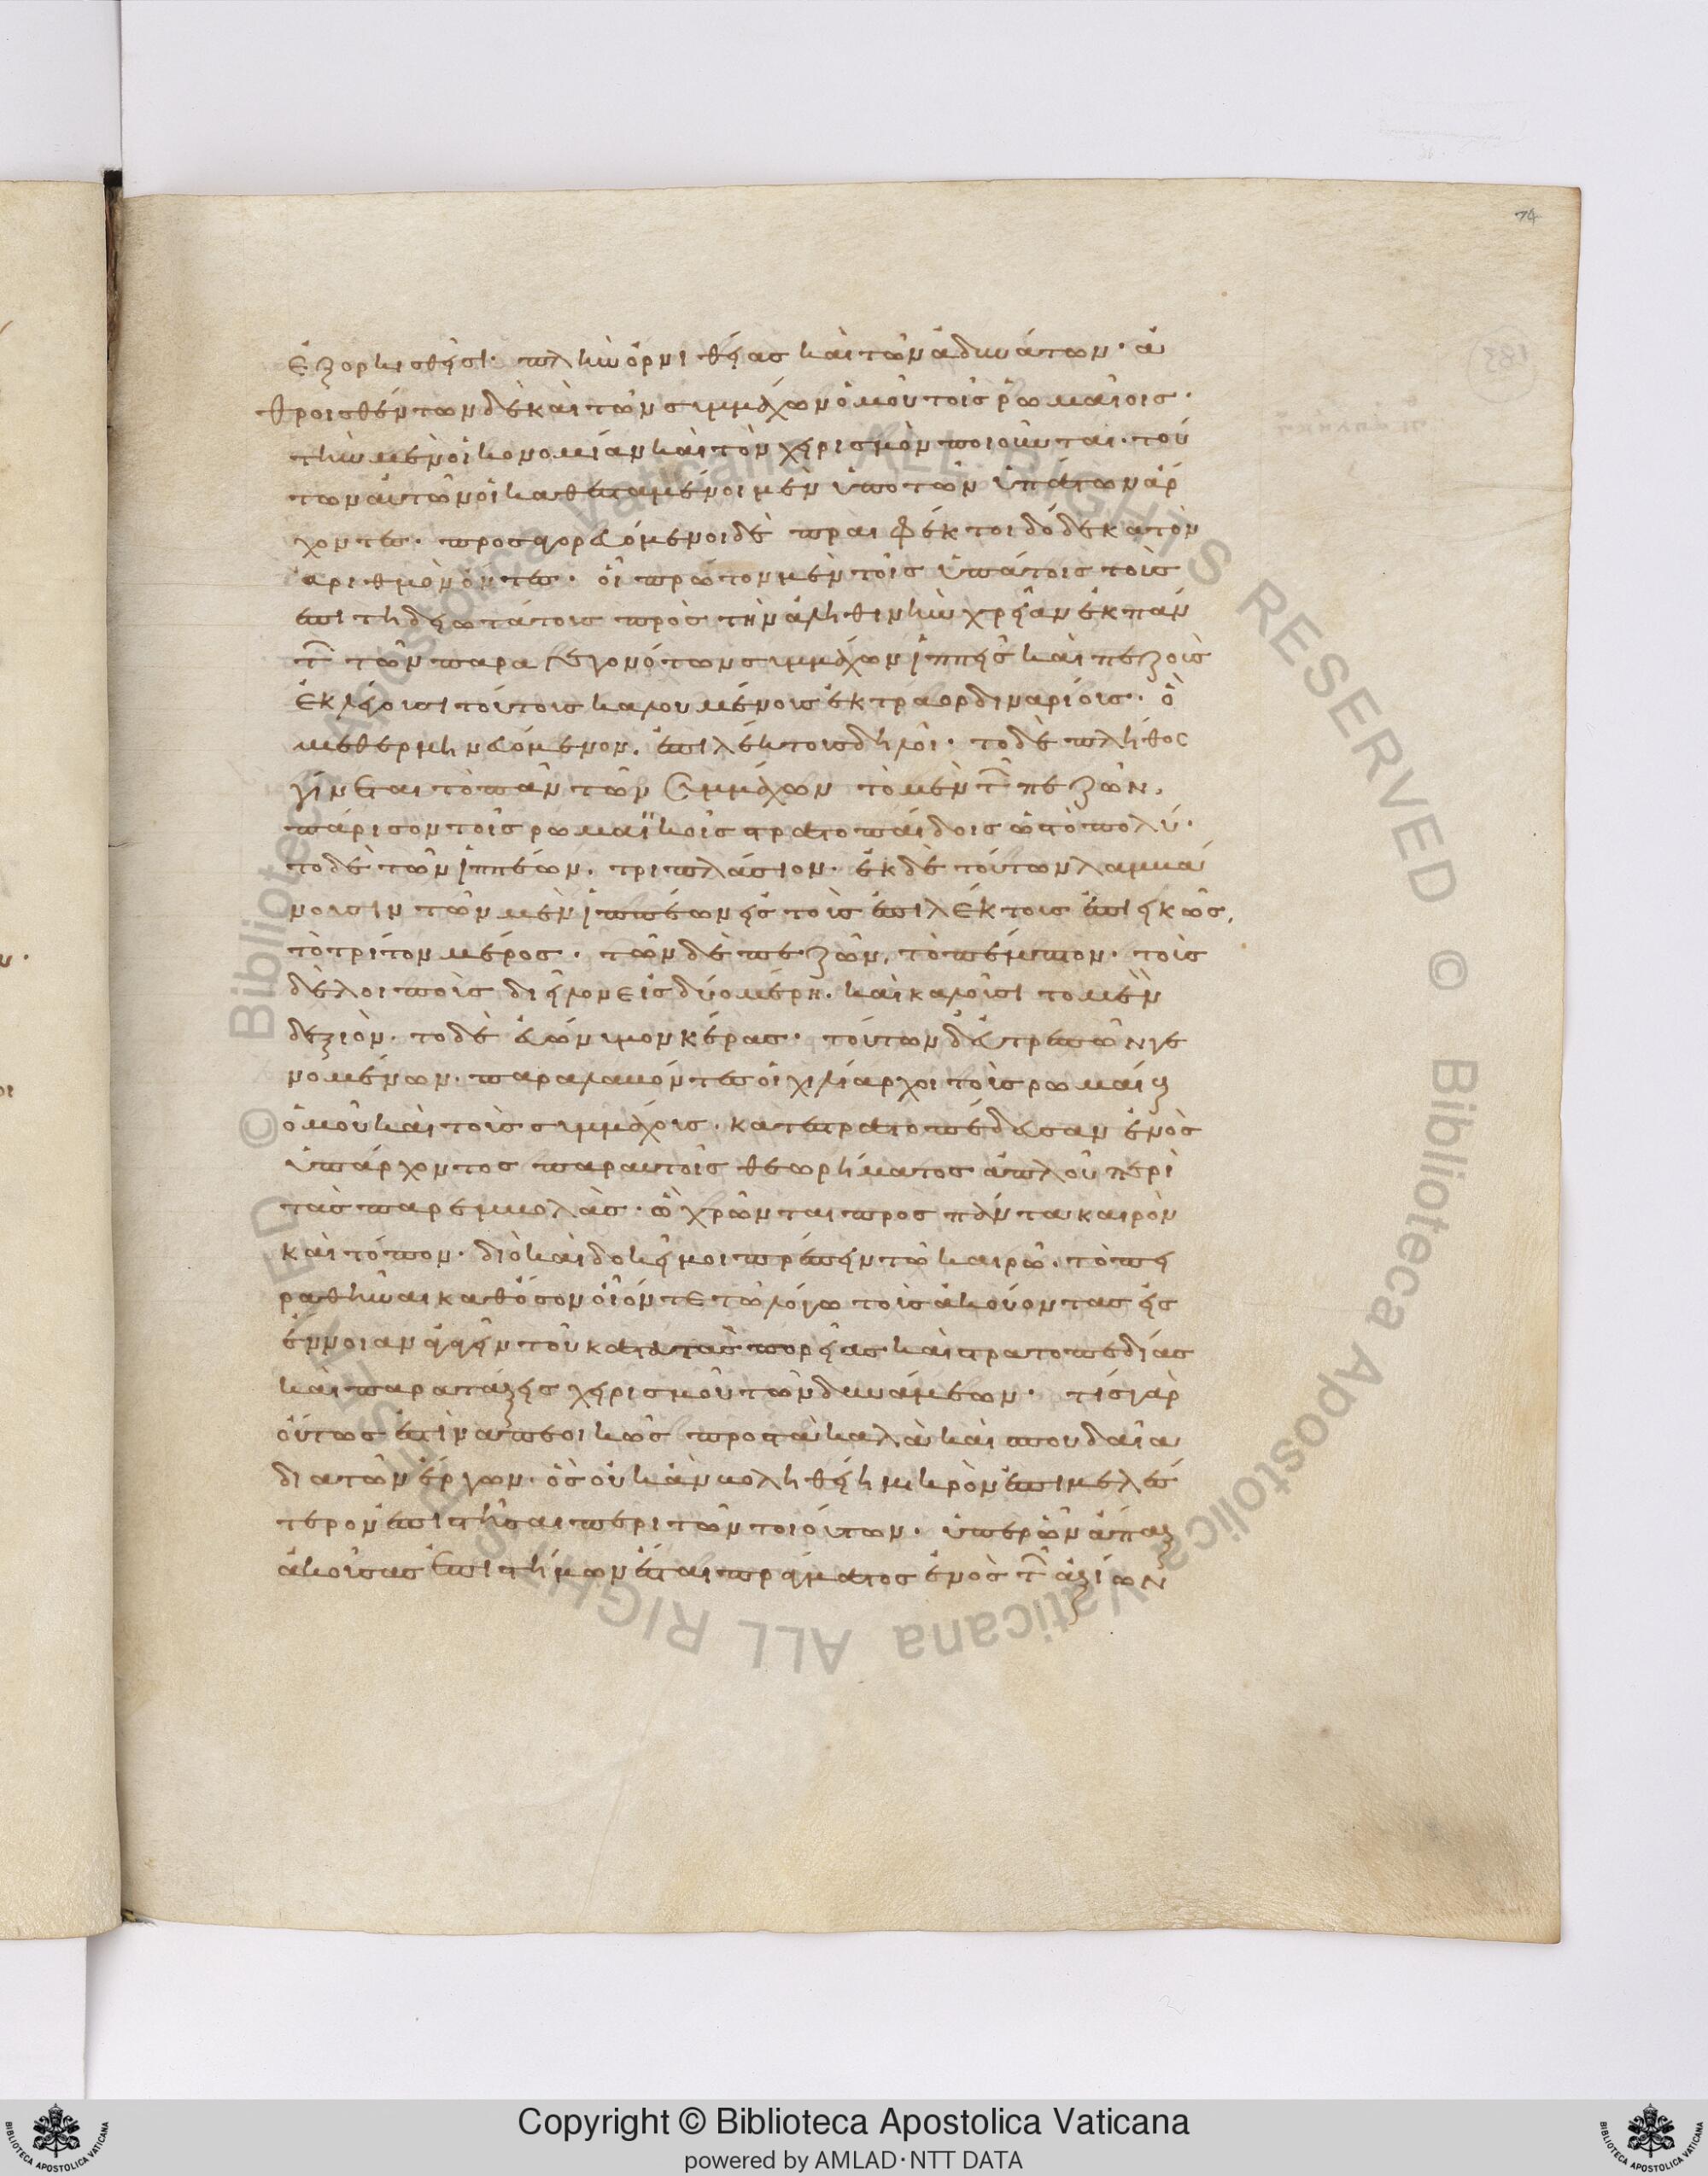 74
ἐξορκισθεῖσι· πλὴν ὀρνιθείας καὶ τῶν ἀδυνάτων· ἁ
θροισθέντων δὲ καὶ τῶν συμμάχων ὁμοῦ τοῖς ῥωμαίοις·
τὴν μὲν οἰκονομίαν καὶ τὸν χειρισμὸν ποιοῦνται· τού
των αὐτῶν οἱ καθεσταμένοι μὲν ὑπὸ τῶν ὑπάτων ἄρ
χοντες· προσαγορευόμενοι δὲ πραιφέκτοι δώδεκα τὸν
ἀριθμὸν ὄντες· οἳ πρῶτον μὲν τοῖς ὑπάτοις τοὺς
ἐπιτηδειοτάτους πρὸς τὴν ἀληθινὴν χρείαν ἐκ πάν
των τῶν παραγεγονότων συμμάχων ἱππεῖς καὶ πεζοὺς
ἐκλέγουσι τοὺς καλουμένους ἐκτραορδιναρίους· ὃ
μεθερμηνευόμενον, ἐπιλέκτους δηλοῖ· τὸ δὲ πλῆθος
γίνεται τὸ πᾶν τῶν συμμάχων τὸ μὲν τῶν πεζῶν,
πάρισον τοῖς ῥωμαϊκοῖς στρατοπαίδοις ὡς τὸ πολύ·
τὸ δὲ τῶν ἱππέων, τριπλάσιον· ἐκ δὲ τούτων λαμβά
νουσιν τῶν μὲν ἱππέων εἰς τοὺς ἐπιλέκτους ἐπιεικῶς,
τὸ τρίτον μέρος· τῶν δὲ πεζῶν, τὸ πέμπτον· τοὺς
δὲ λοιποὺς διεῖλον εἰς δύο μέρη· καὶ καλοῦσι τὸ μὲν
δεξιόν· τὸ δὲ εὐώνυμον κέρας· τούτων δ' εὐτρεπῶν γε
νομένων· παραλαβόντες οἱ χιλίαρχοι τοὺς ῥωμαίους
ὁμοῦ καὶ τοὺς συμμάχους· κατεστρατοπέδευσαν ἑνὸς
ὑπάρχοντος παρ' αὐτοῖς θεωρήματος ἁπλοῦ περὶ
τὰς παρεμβολάς· ᾧ χρῶνται πρὸς πάντα καιρὸν
καὶ τόπον· διὸ καὶ δοκεῖ μοι πρέπειν τῷ καιρῷ· τὸ πει
ραθῆναι καθ' ὅσον οἷόν τε τῷ λόγῳ τοὺς ἀκούοντας εἰς
ἔννοιαν ἀγαγεῖν τοῦ κατὰ τὰς πορείας καὶ στρατοπεδείας
καὶ παρατάξεις χειρισμοῦ τῶν δυνάμεων· τίς γὰρ
οὕτως ἐστὶν ἀπεοικὼς πρὸς τὰ καλὰ καὶ σπουδαῖα
διὰ τῶν ἔργων· ὃς οὐκ ἂν βουληθείη μικρὸν ἐπιμελέσ
τερον ἐπιστῆσαι περὶ τῶν τοιούτων· ὑπὲρ ὧν ἅπαξ
ἀκούσας ἐπιστήμων ἔσται πράγματος ἑνὸς τῶν ἀξίων
Copyright © Biblioteca Apostolica Vaticana
powered by AMLAD·NTT DATA